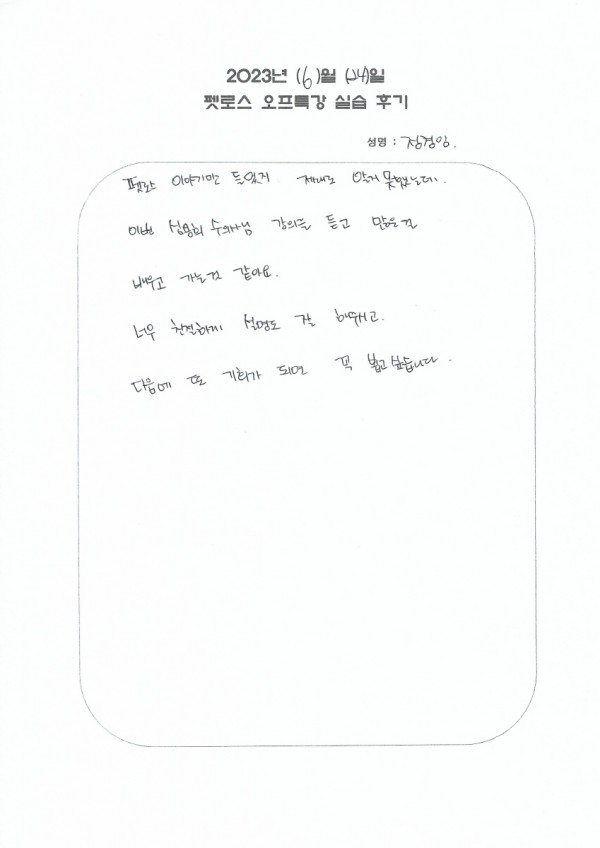 2023년 (6)월 (24)일
펫로스 오프특강 실습 후기
성명 : 정경임.
펫로스 이야기만 들었지 제대로 알지 못했는데.
이번 수의사님 강의를 듣고 많은걸
배우고 가는것 같아요.
너무 친절하게 설명도 잘 해주시고.
다음에 또 기회가 되면 꼭 뵙고 싶습니다.